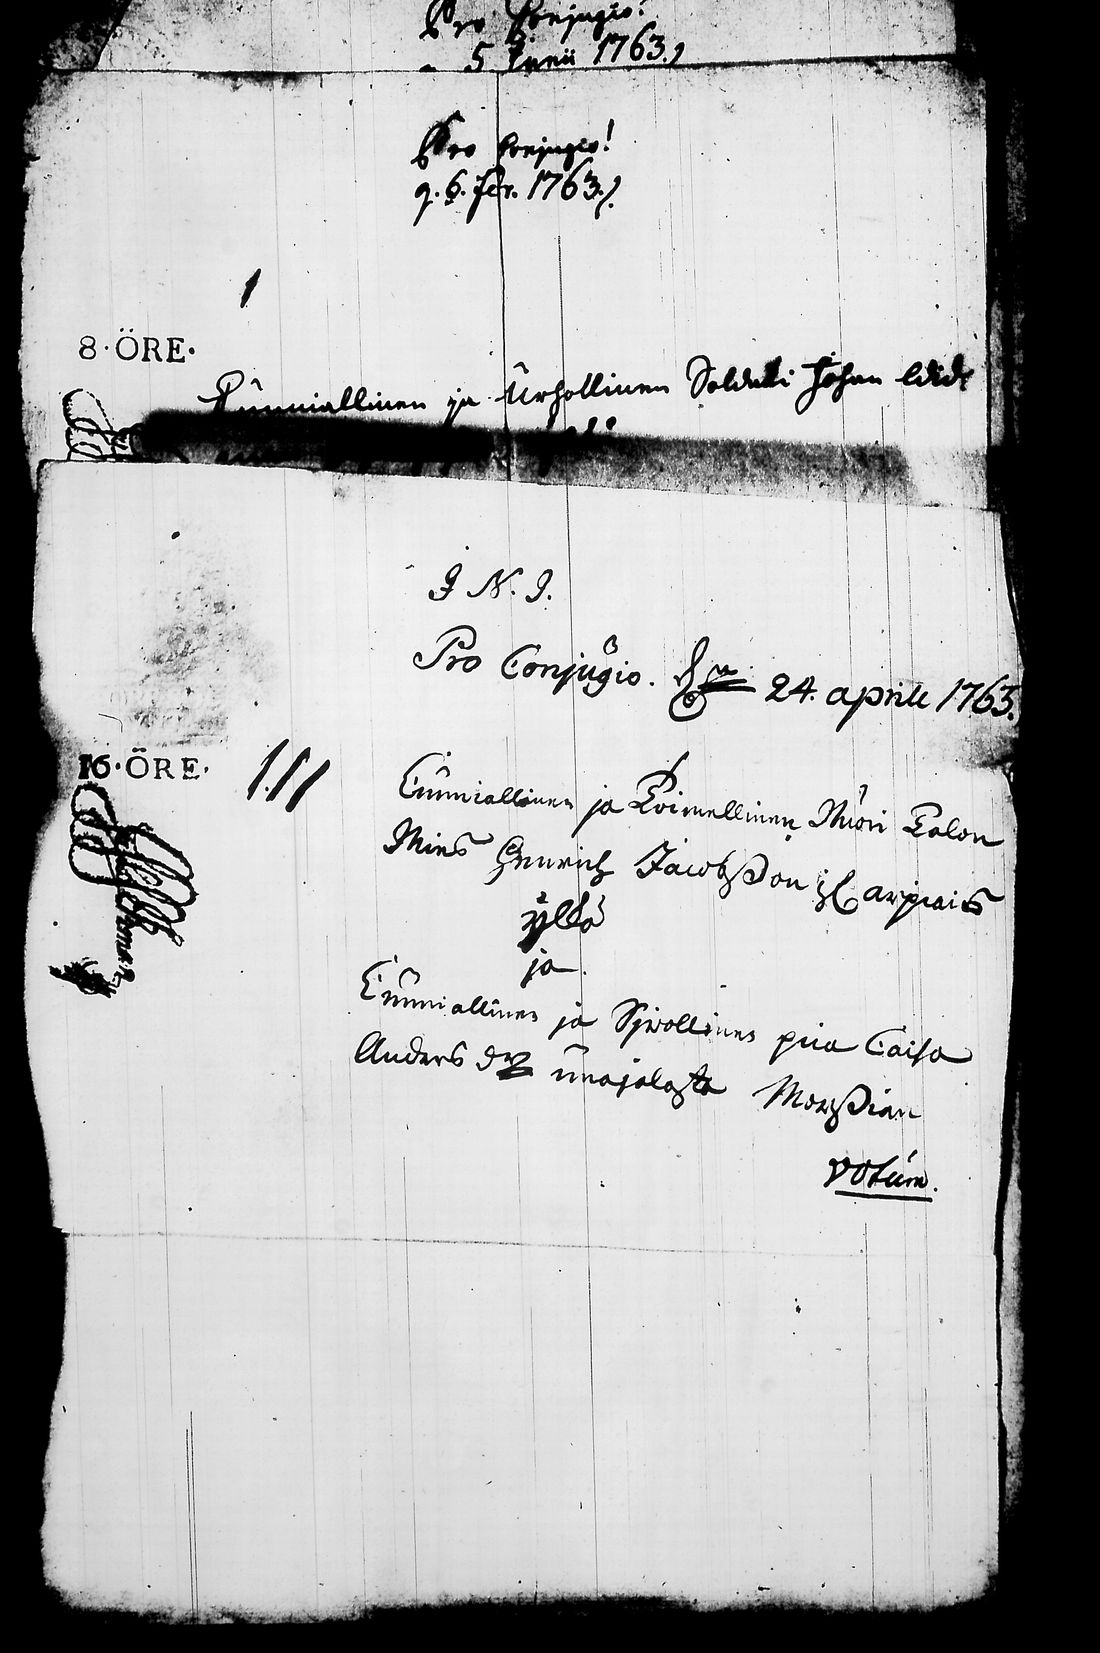 Pro Conjugio!
5 Junii 1763.
Pro Conjugio!
q. 6. fer. 1763.
1
8·ÖRE·
Cunniallinen ja Urhollinen Soldati Johan
J N. J.
Pro Conjugio. 24. aprile 1763.
16·ÖRE·
Cunniallinen ja Toimellinen Nuori Talon
Mies Henrich Jacobsson Carpiais
yllä
ja
Cunniallinen ja Sivollinen pija Caisa
Anders dr unajalasta Morsian
votum.